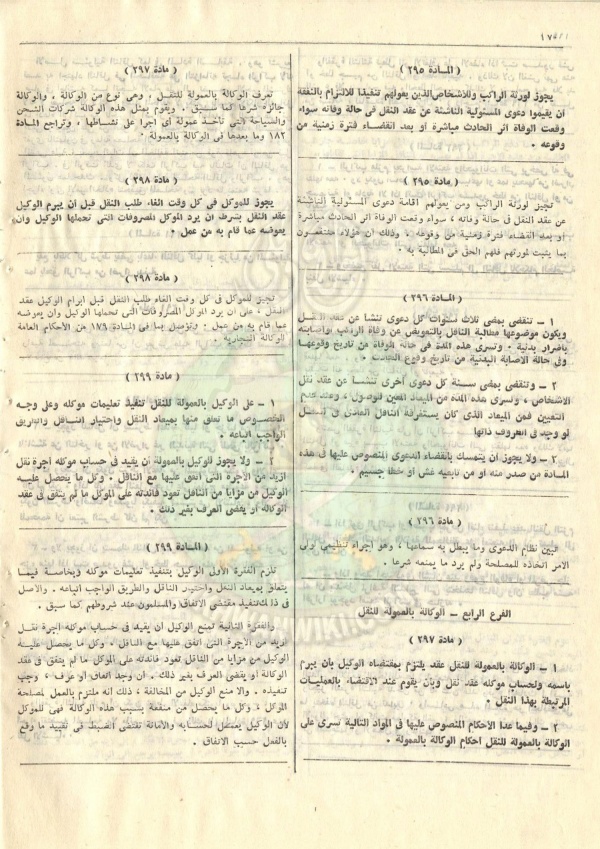 ( المـادة ٢٩٥ )
يجوز لورثة الراكب وللاشخاص الذين يعولهم تنفيذا للالتزام بالنفقة
ان يقيموا دعوى المسئولية الناشئة عن عقد النقل في حالة وفاته سواء
وقعت الوفاة اثر الحادث مباشرة أو بعد انقضاء فترة زمنية من
وقوعه .
( مادة ٢٩٥ )
تجيز لورثة الراكب ومن يعولهم اقامة دعوى المسئولية الناشئة
عن عقد النقل في حالة وفاته ، سواء وقعت الوفاة اثر الحادث مباشرة
أو بعد انقضاء فترة زمنية من وقوعه . وذلك ان هؤلاء
بما يثبت لمورثهم فلهم الحق في المطالبة به .
( المـادة ٢٩٦ )
١ ــ تنقضي بمضي ثلاث سنوات كل دعوى تنشأ عن عقد النقـل
ويكون موضوعها مطالبة الناقل بالتعويض عن وفاة الراكب او اصابته
باضرار بدنية . وتسرى هذه المدة في حالة الوفاة من تاريخ وقوعها
وفي حالة الاصابة البدنية من تاريخ وقوع الحادث .
٢ ــ وتنقضي بمضي سـنة كل دعوى أخرى تنشـأ عن عقد نقل
الاشخاص ، وتسرى هذه المدة من الميعاد المعين للوصول ، وعند عدم
التعيين فمن الميعاد الذى كان يستغرقه الناقل العادى في النقل
لو وجد في الظروف ذاتها
٢ ــ ولا يجوز ان يتمسك بانقضاء الدعوى المنصوص عليها في هذه
المادة من صدر منه او من تابعيه غش او خطأ جسيم .
( مادة ٢٩٦ )
تبين نظام الدعوى وما يبطل به سماعها ، وهو اجراء تنظيمي لولى
الامر اتخاذه للمصلحة ولم يرد ما يمنعه شرعا .
الفرع الرابع ــ الوكالة بالعمولة للنقل
( مادة ٢٩٧ )
١ ــ الوكالة بالعمولة للنقل عقد يلتزم بمقتضاه الوكيل بان يبرم
باسمه ولحساب موكله عقد نقل وبان يقوم عند الاقتضاء بالعمليـات
المرتبطة بهذا النقل .
٢ ــ وفيما عدا الاحكام المنصوص عليها في المواد التالية تسرى على
الوكالة بالعمولة للنقل احكام الوكالة بالعمولة .
( مادة ٢٩٧ )
تعرف الوكالة بالعمولة للنقـل ، وهي نوع من الوكالة ، والوكالة
جائزة شرعا كما سـبق . ويقوم بمثل هذه الوكالة شركات الشحن
والسياحة التى تأخـذ عمولة أى أجرا على نشـاطها ، وتراجع المـادة
١٨٢ وما بعدها في الوكالة بالعمولة .
( مادة ٢٩٨ )
يجوز للموكل في كل وقت الغاء طلب النقل قبل أن يبرم الوكيل
عقد النقل بشرط ان يرد الموكل المصروفات التي تحملها الوكيل وان
يعوضه عما قام به من عمل .
( مادة ٢٩٨ )
تجيز للموكل في كل وقت الغاء طلب النقل قبل ابرام الوكيل عقد
النقل ، على ان يرد الموكل المصروفات التى تحملها الوكيل وان يعوضه
عما قام به من عمل . وتؤصل بما في المـادة ١٧٦ من الأحكام العامة
الوكالة التجارية .
( مادة ٢٩٩ )
١ ــ على الوكيل بالعمولة للنقل تنفيذ تعليمات موكله وعلى وجـه
الخصـوص ما تعلق منها بميعاد النقل واختيار النـاقل والطريق
الواجب اتباعه .
٢ ــ ولا يجوز للوكيل بالعمولة أن يقيد في حساب موكله اجرة نقل
ازيد من الأجرة التى اتفق عليها مع الناقل . وكل ما يحصل عليـه
الوكيل من مزايا من الناقل تعود فائدته على الموكل ما لم يتفق في عقد
الوكالة أو يقضى العرف بغير ذلك .
( المـادة ٢٩٩ )
تلزم الفقرة الأولى الوكيل بتنفيذ تعليمات موكله وبخاصة فيمـا
يتعلق بميعاد النقل واختيار الناقل والطريق الواجب اتباعه . والأصل
في ذلك تنفيذ مقتضى الاتفاق والمسلمون عند شروطهم كما سبق .
والفقرة الثانية تمنع الوكيل أن يقيد في حساب موكله اجرة نقـل
ازيد من الأجرة التى اتفق عليها مع الناقل . وكل ما يحصل عليـه
الوكيل من مزايا من الناقل تعود فائدته على الموكل ما لم يتفق في عقد
الوكالة أو يقضى العرف بغير ذلك . أن وجد اتفاق أو عرف ، وجب
تنفيذه . والا منع الوكيل من المخالفة ، ذلك انه ملتزم بالعمل لمصلحة
الموكل ، وكل ما يحصل من منفعة بسبب هذه الوكالة فهى للموكل
لأن الوكيل يعمـل لحسابه والأمانة تقتضى الضبط في تقييد ما وقع
بالفعل حسب الاتفاق .